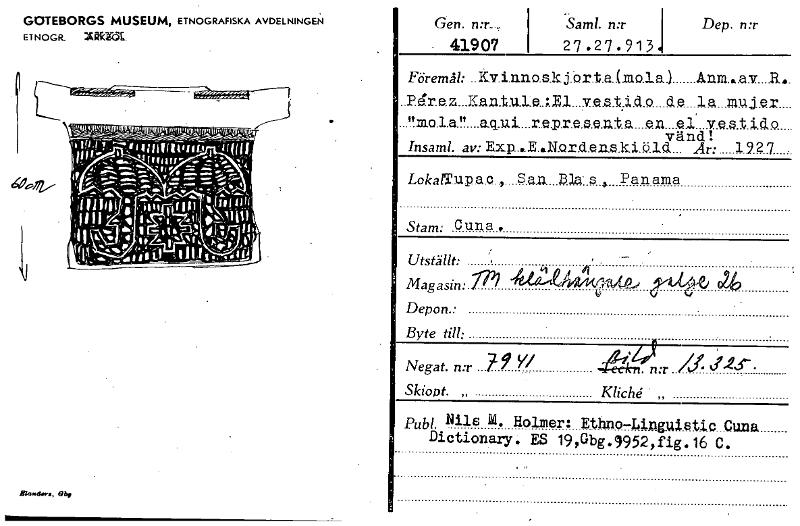 GÖTEBORGS MUSEUM, ETNOGRAFISKA AVDELNINGEN
ETNOGR. ARKEOL.
60 cm
Elanders, Gbg
Gen. n:r Saml. n:r Dep. n:r
41907 27.27.913.
Föremål: Kvinnoskjorta(mola) Anm.av R.
Pérez Kantule:El vestido de la mujer
"mola" aqui representa en el vestido
vänd!
Insaml. av: Exp.E.Nordenskiöld År: 1927
Lokal: Tupac, San Blas, Panama
Stam: Cuna.
Utställt:
Magasin: TM klädhängare galge 26
Depon.:
Byte till:
Negat. n:r 7941 Bild Teckn. n:r 13.325.
Skiopt. „ Kliché „
Publ. Nils M. Holmer: Ethno-Linguistic Cuna
Dictionary. ES 19,Gbg.9952,fig.16 C.